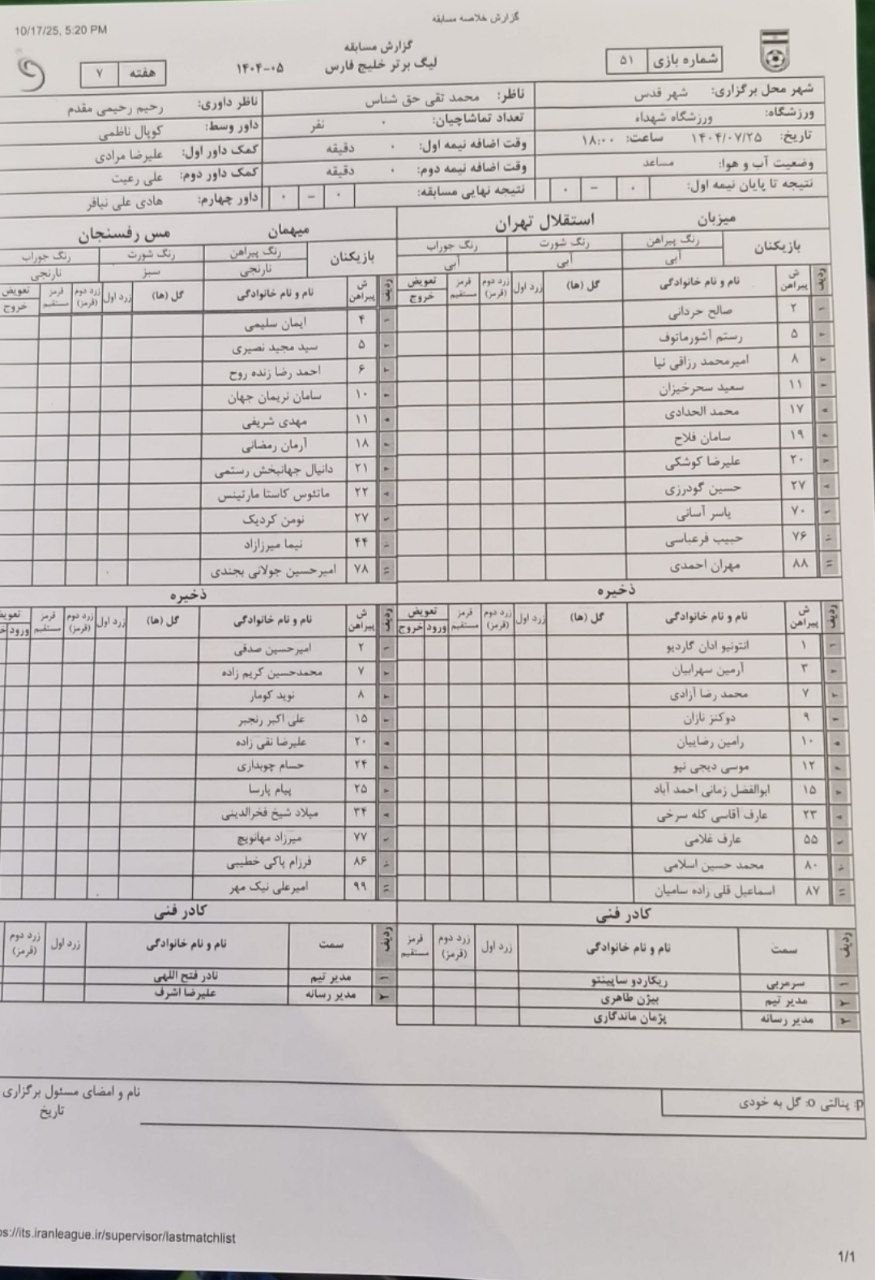 10/17/25, 5:20 PM
گزارش خلاصه مسابقه
گزارش مسابقه
لیگ برتر خلیج فارس ۰۵-۱۴۰۴
شماره بازی ۵۱
هفته ۷
شهر محل برگزاری: شهر قدس
ناظر: محمد تقی حق شناس
ناظر داوری: رحیم رحیمی مقدم
ورزشگاه: ورزشگاه شهداء
تعداد تماشاچیان: ۰ نفر
داور وسط: کوپال ناظمی
تاریخ: ۱۴۰۴/۰۷/۲۵ ساعت: ۱۸:۰۰
وقت اضافه نیمه اول: ۰ دقیقه
کمک داور اول: علیرضا مرادی
وضعیت آب و هوا: مساعد
وقت اضافه نیمه دوم: ۰ دقیقه
کمک داور دوم: علی رعیت
نتیجه تا پایان نیمه اول: ۰ – ۰
نتیجه نهایی مسابقه: ۰ – ۰
داور چهارم: هادی علی نیافر
میزبان استقلال تهران
بازیکنان رنگ پیراهن رنگ شورت رنگ جوراب
آبی آبی آبی
ردیف ش پیراهن نام و نام خانوادگی گل (ها) زرد اول زرد دوم (قرمز) قرمز مستقیم تعویض خروج
۱ ۲ صالح حردانی
۲ ۵ رستم آشورماتوف
۳ ۸ امیرمحمد رزاقی نیا
۴ ۱۱ سعید سحرخیزان
۵ ۱۷ محمد الحدادی
۶ ۱۹ سامان فلاح
۷ ۲۰ علیرضا کوشکی
۸ ۲۷ حسین گودرزی
۹ ۷۰ یاسر آسانی
۱۰ ۷۶ حبیب فرعباسی
۱۱ ۸۸ مهران احمدی
ذخیره
ردیف ش پیراهن نام و نام خانوادگی گل (ها) زرد اول زرد دوم (قرمز) قرمز مستقیم تعویض ورود خروج
۱ ۱ انتونیو ادان گاردیو
۲ ۳ آرمین سهرابیان
۳ ۷ محمد رضا آزادی
۴ ۹ دوکنز نازان
۵ ۱۰ رامین رضاییان
۶ ۱۲ موسی دیجی نپو
۷ ۱۵ ابوالفضل زمانی احمد آباد
۸ ۲۳ عارف آقاسی کله سرخی
۹ ۵۵ عارف غلامی
۱۰ ۸۰ محمد حسین اسلامی
۱۱ ۸۷ اسماعیل قلی زاده سامیان
کادر فنی
ردیف سمت نام و نام خانوادگی زرد اول زرد دوم (قرمز) قرمز مستقیم
۱ سرمربی ریکاردو ساپینتو
۲ مدیر تیم بیژن طاهری
۳ مدیر رسانه پژمان ماندگاری
میهمان مس رفسنجان
بازیکنان رنگ پیراهن رنگ شورت رنگ جوراب
نارنجی سبز نارنجی
ردیف ش پیراهن نام و نام خانوادگی گل (ها) زرد اول زرد دوم (قرمز) قرمز مستقیم تعویض خروج
۱ ۴ ایمان سلیمی
۲ ۵ سید مجید نصیری
۳ ۶ احمد رضا زنده روح
۴ ۱۰ سامان نریمان جهان
۵ ۱۱ مهدی شریفی
۶ ۱۸ آرمان رمضانی
۷ ۲۱ دانیال جهانبخش رستمی
۸ ۲۲ ماتئوس کاستا مارتینس
۹ ۲۷ نومن کردیک
۱۰ ۴۴ نیما میرزازاد
۱۱ ۷۸ امیرحسین جولانی بجندی
ذخیره
ردیف ش پیراهن نام و نام خانوادگی گل (ها) زرد اول زرد دوم (قرمز) قرمز مستقیم ورود
۱ ۲ امیرحسین صدقی
۲ ۷ محمدحسین کریم زاده
۳ ۸ نوید کومار
۴ ۱۵ علی اکبر رنجبر
۵ ۲۰ علیرضا نقی زاده
۶ ۲۴ حسام چوبداری
۷ ۲۵ پیام پارسا
۸ ۳۴ میلاد شیخ فخرالدینی
۹ ۷۷ میرزاد مهانویچ
۱۰ ۸۶ فرزام پاکی خطیبی
۱۱ ۹۹ امیرعلی نیک مهر
کادر فنی
ردیف سمت نام و نام خانوادگی زرد اول زرد دوم (قرمز)
۱ مدیر تیم نادر فتح اللهی
۲ مدیر رسانه علیرضا اشرف
p: پنالتی o: گل به خودی
نام و امضای مسئول برگزاری
تاریخ
ps://its.iranleague.ir/supervisor/lastmatchlist
1/1